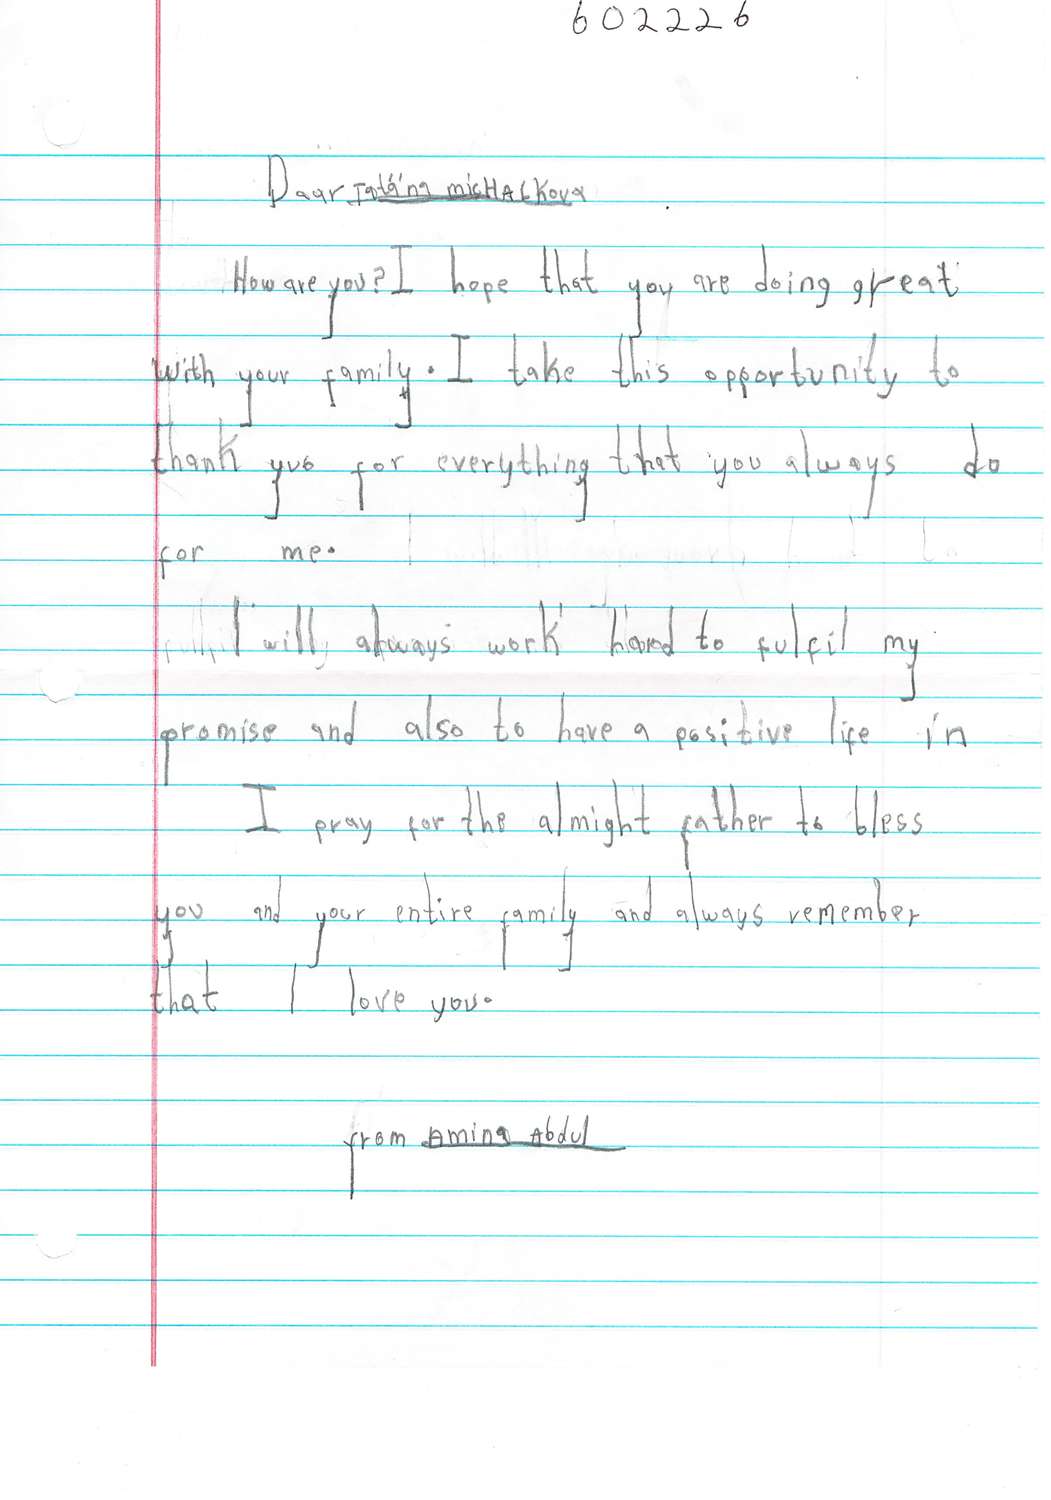 602226
Daar Tatána micHALKova
How are you? I hope that you are doing great
with your family. I take this opportunity to
thank yuo for everything that you always do
for me.
I will always work hard to fulfil my
promise and also to have a positive life in
I pray for the almight father to bless
you and your entire family and always remember
that I love you.
from Amina Abdul